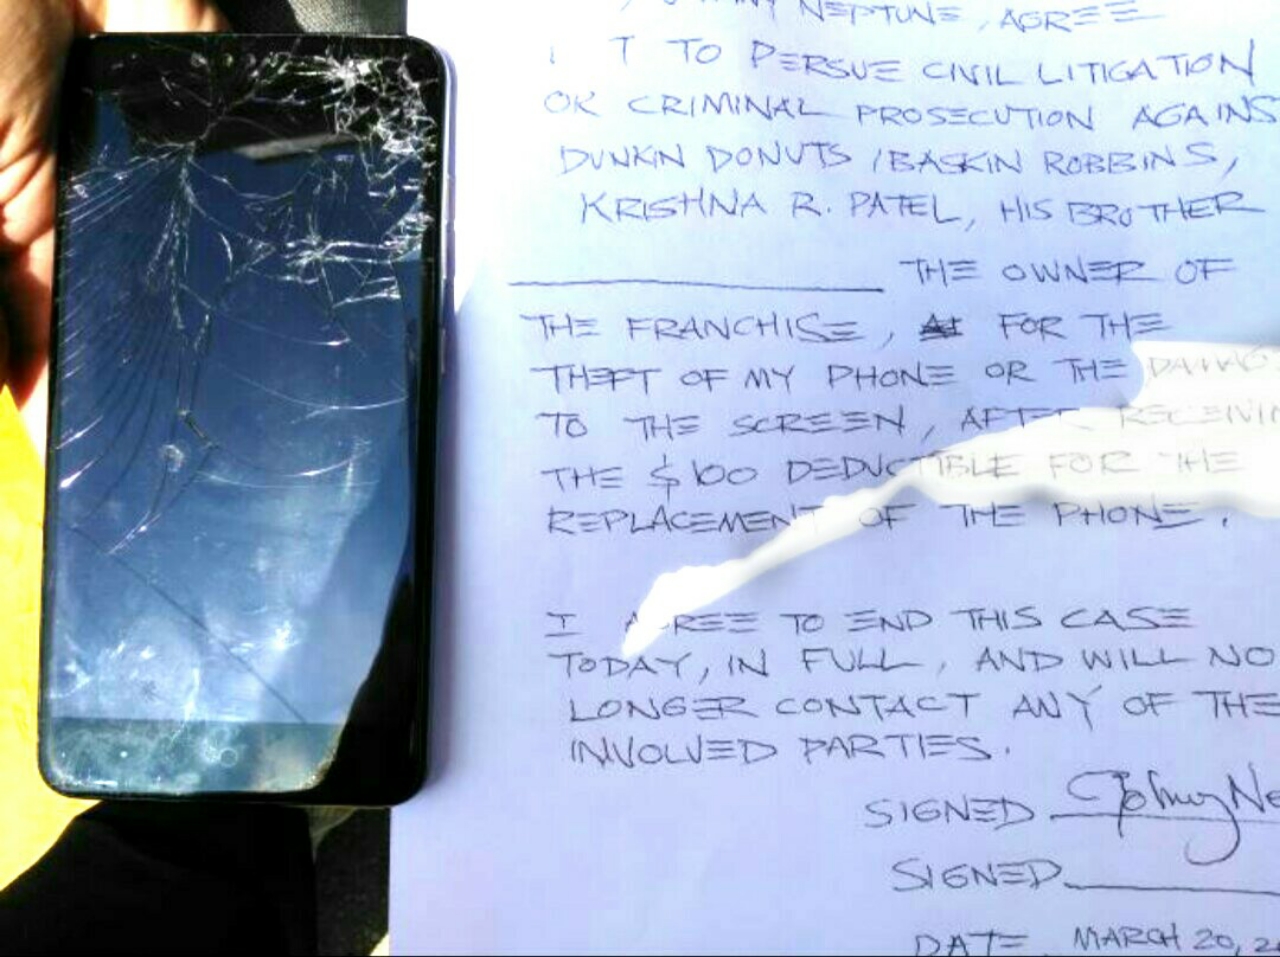 NEPTUNE, AGREE
T TO PERSUE CIVIL LITIGATION
OR CRIMINAL PROSECUTION AGAINS
DUNKIN DONUTS / BASKIN ROBBINS,
KRISHNA R. PATEL, HIS BROTHER
THE OWNER OF
THE FRANCHISE, FOR THE
THEFT OF MY PHONE OR THE DAMAG
TO THE SCREEN, AFTER RECEIVIN
THE $100 DEDUCTIBLE FOR THE
REPLACEMENT OF THE PHONE.
I AGREE TO END THIS CASE
TODAY, IN FULL, AND WILL NO
LONGER CONTACT ANY OF THE
INVOLVED PARTIES.
SIGNED Johnny Ne
SIGNED
DATE MARCH 20, 2